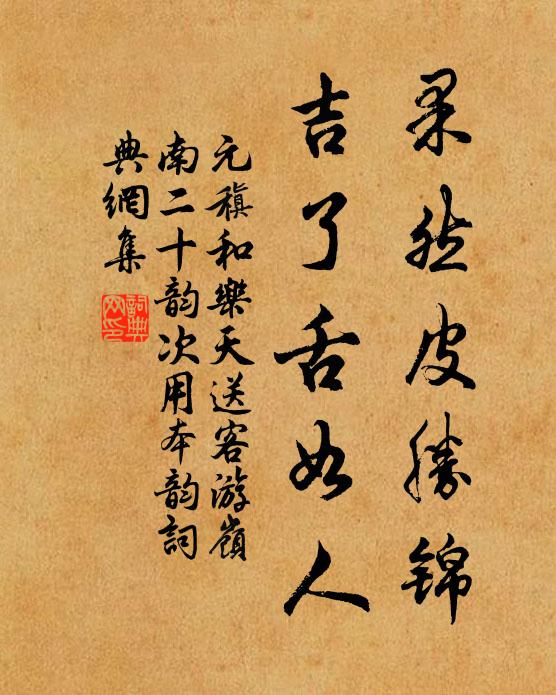 果然皮勝錦
吉了舌如人
元稹和樂天送客游嶺
南二十韵次用本韵詞
典網集
詞典網印